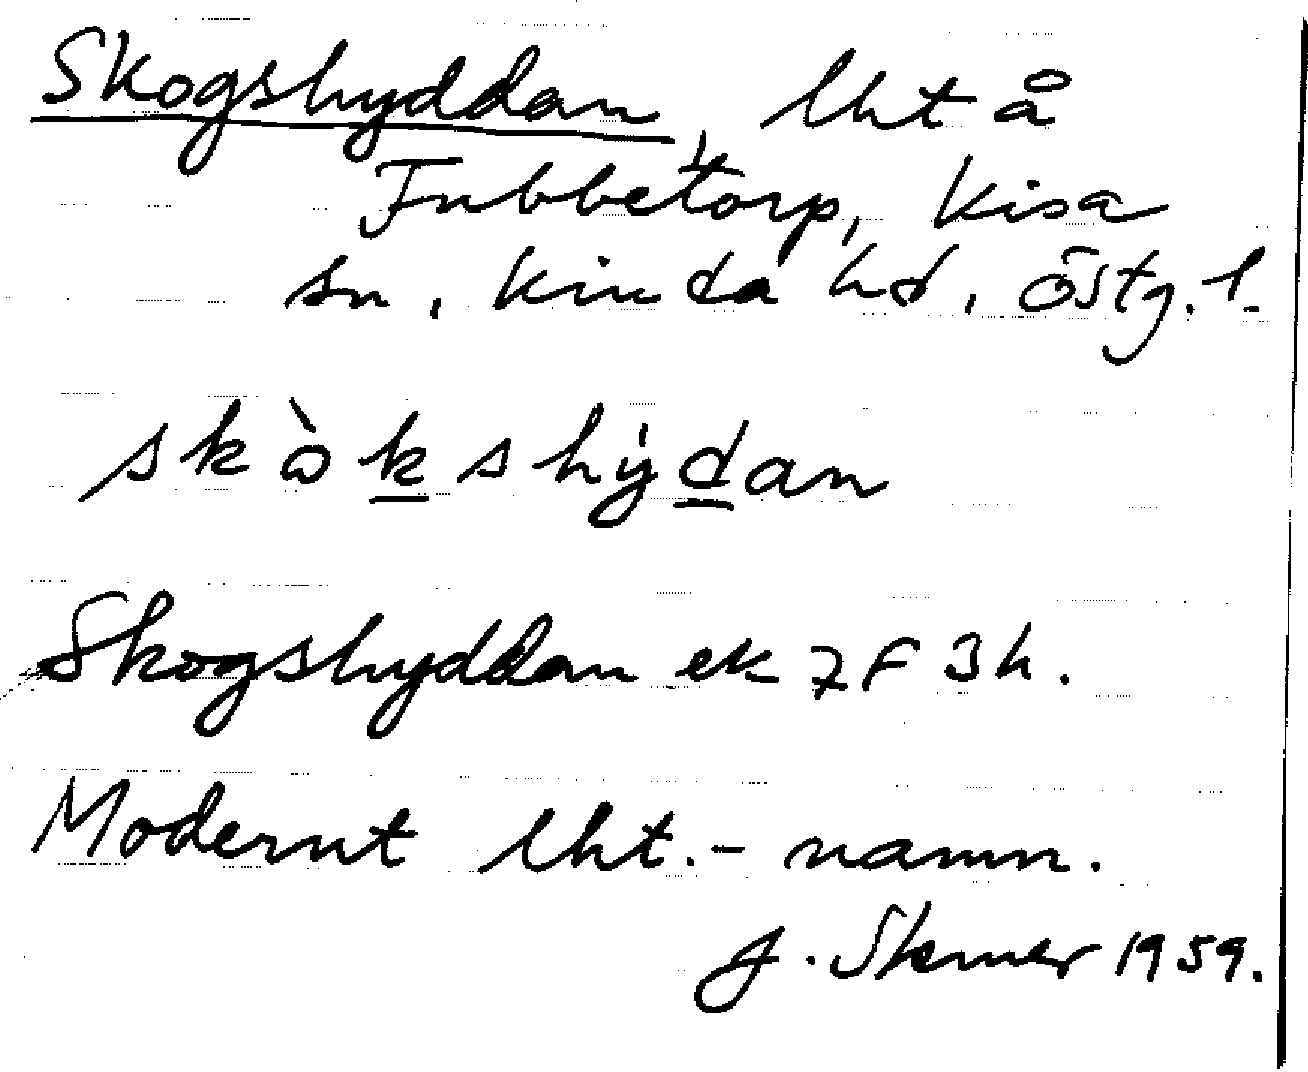 Skogshyddan, lht å
Fubbetorp, Kisa
sn, Kinda hd, Östg. l.
skòkshýdan
Skogshyddan ek 7F 3h.
Modernt lht.-namn.
1959.